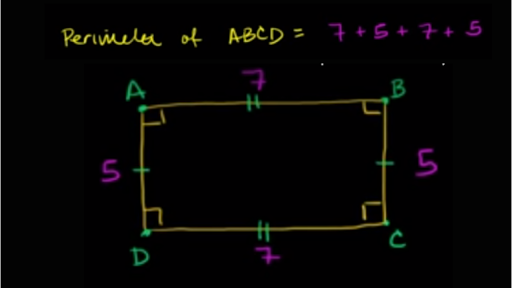 Perimeter of ABCD = 7 + 5 + 7 + 5
7
A B
5 5
D C
7